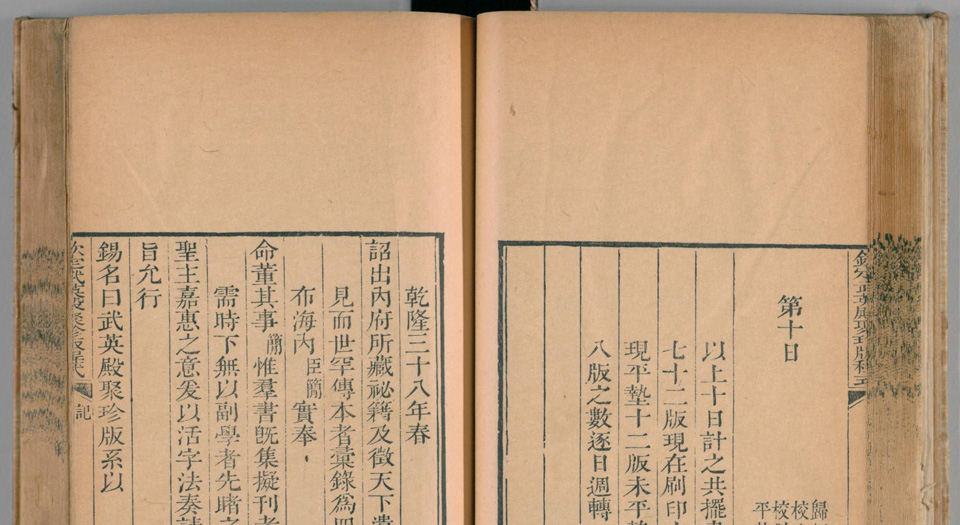 欽定武英殿聚珍版程式
第十日
歸
校
校
平
以上十日計之共擺書
七十二版現在刷印
現平墊十二版未平墊
八版之數逐日週轉
乾隆三十八年春
詔出內府所藏祕籍及徵天下遺
見而世罕傳本者彙錄爲四
布海內臣簡實奉
命董其事簡惟羣書既集擬刊者
需時下無以副學者先睹之
聖主嘉惠之意爰以活字法奏請
旨允行
錫名曰武英殿聚珍版系以
欽定武英殿聚珍版程式
記